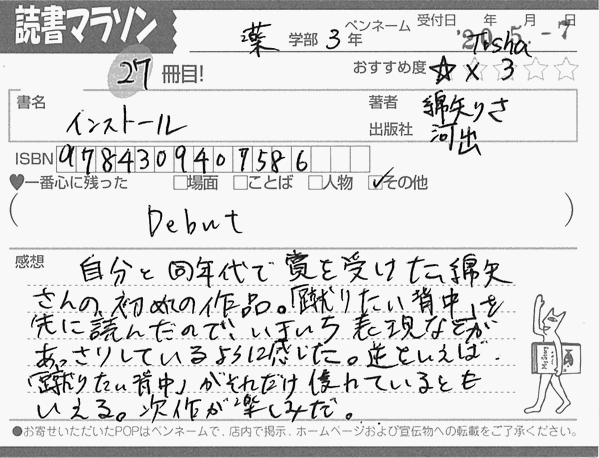 読書マラソン
受付日 年 月 日
'20.5.-7
薬 学部 3 年 ペンネーム Tisha
27 冊目! おすすめ度 ☆ x 3 ☆☆☆
書名 インストール
著者 綿矢りさ
出版社 河出
ISBN 9784309407586
♥一番心に残った □場面 □ことば □人物 ☑その他
( Debut )
感想 自分と同年代で賞を受けた、綿矢
さんの、初めの作品。「蹴りたい背中」を
先に読んだので、いまいち表現などが
あっさりしているように感じた。逆といえば、
「蹴りたい背中」がそれだけ優れているとも
いえる。次作が楽しみだ。
●お寄せいただいたPOPはペンネームで、店内で掲示、ホームページおよび宣伝物への転載をご了承ください。